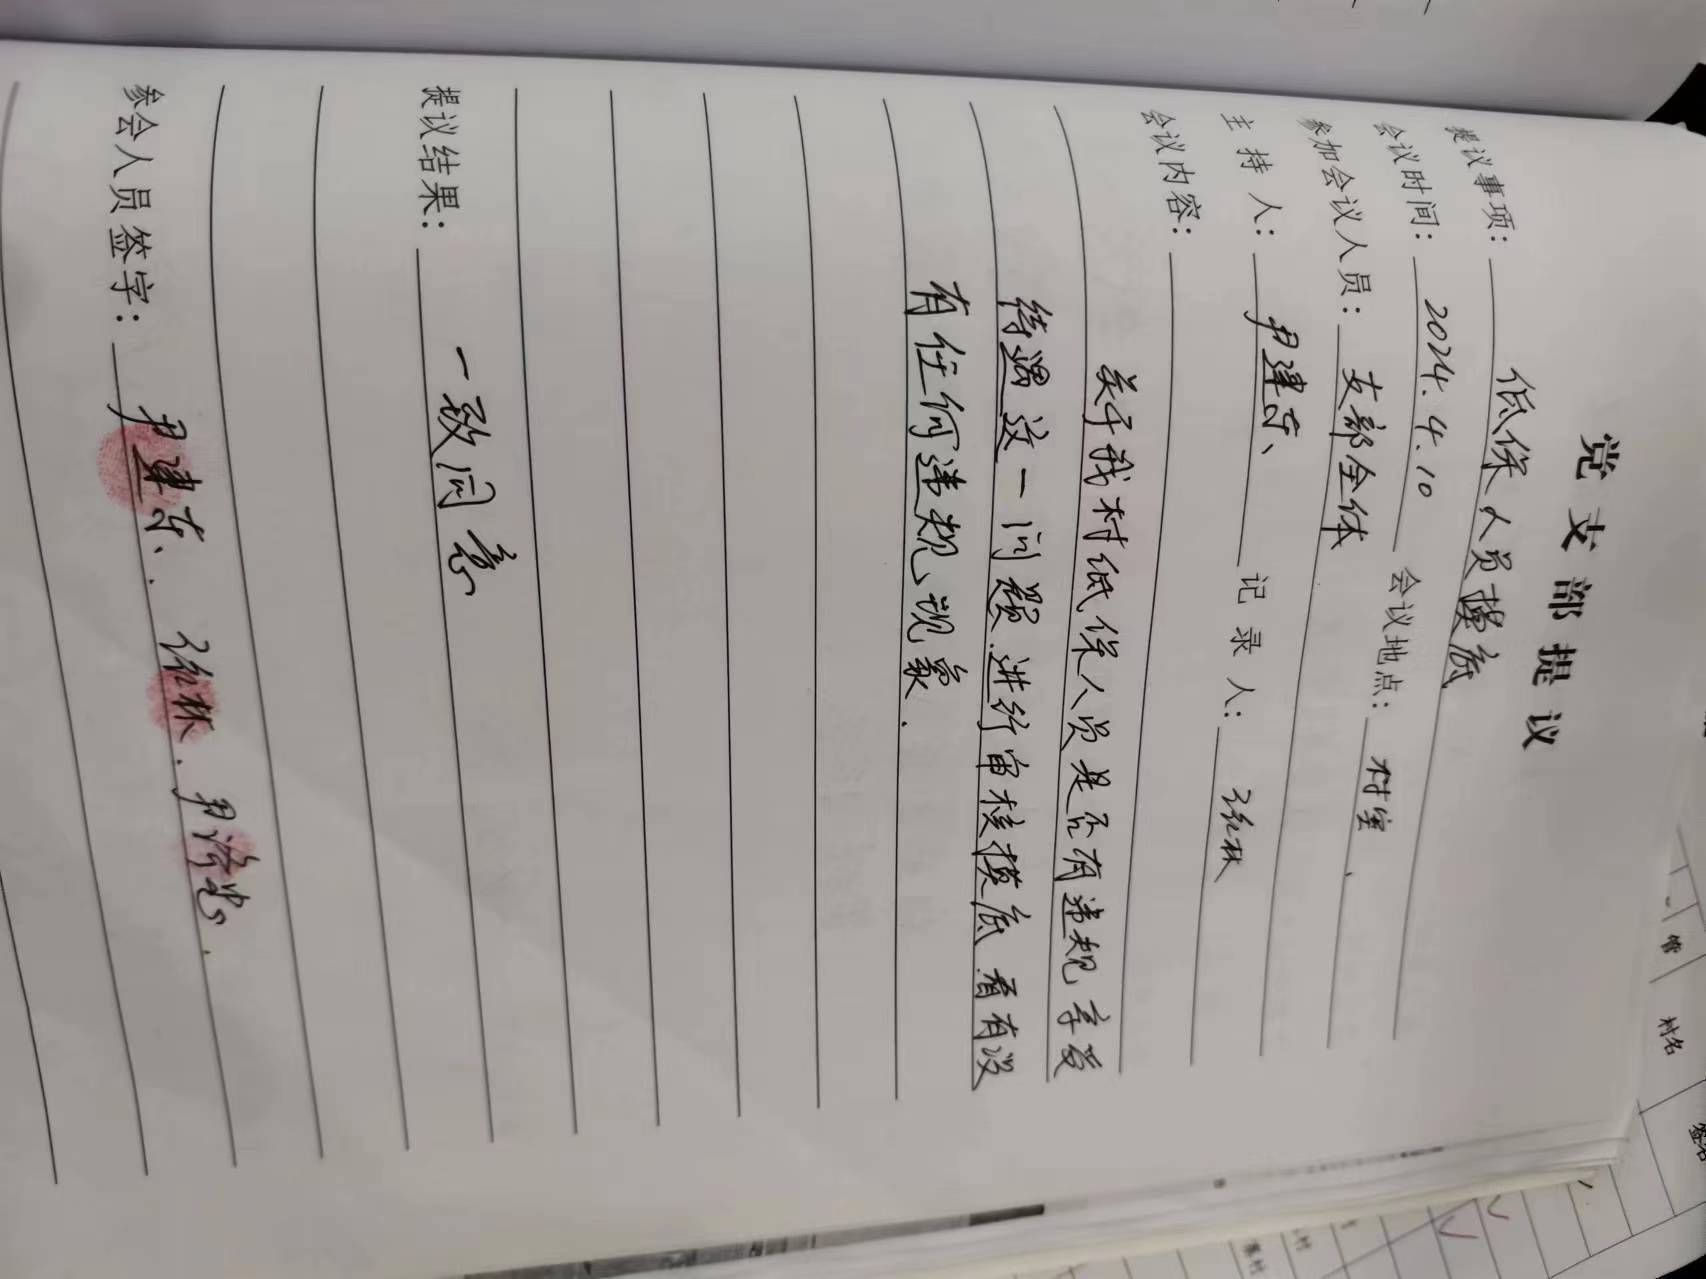 党支部提议
提议事项：低保人员摸底
会议时间：2024.4.10 会议地点：村室、
参加会议人员：支部全体
主持人：尹建东、 记录人：张林
会议内容：
关于我村低保人员是否有违规享受
待遇这一问题.进行审核摸底.看有没
有任何违规现象.
提议结果：一致同意
参会人员签字：尹建东、. 张林. 尹
管
村名
签名